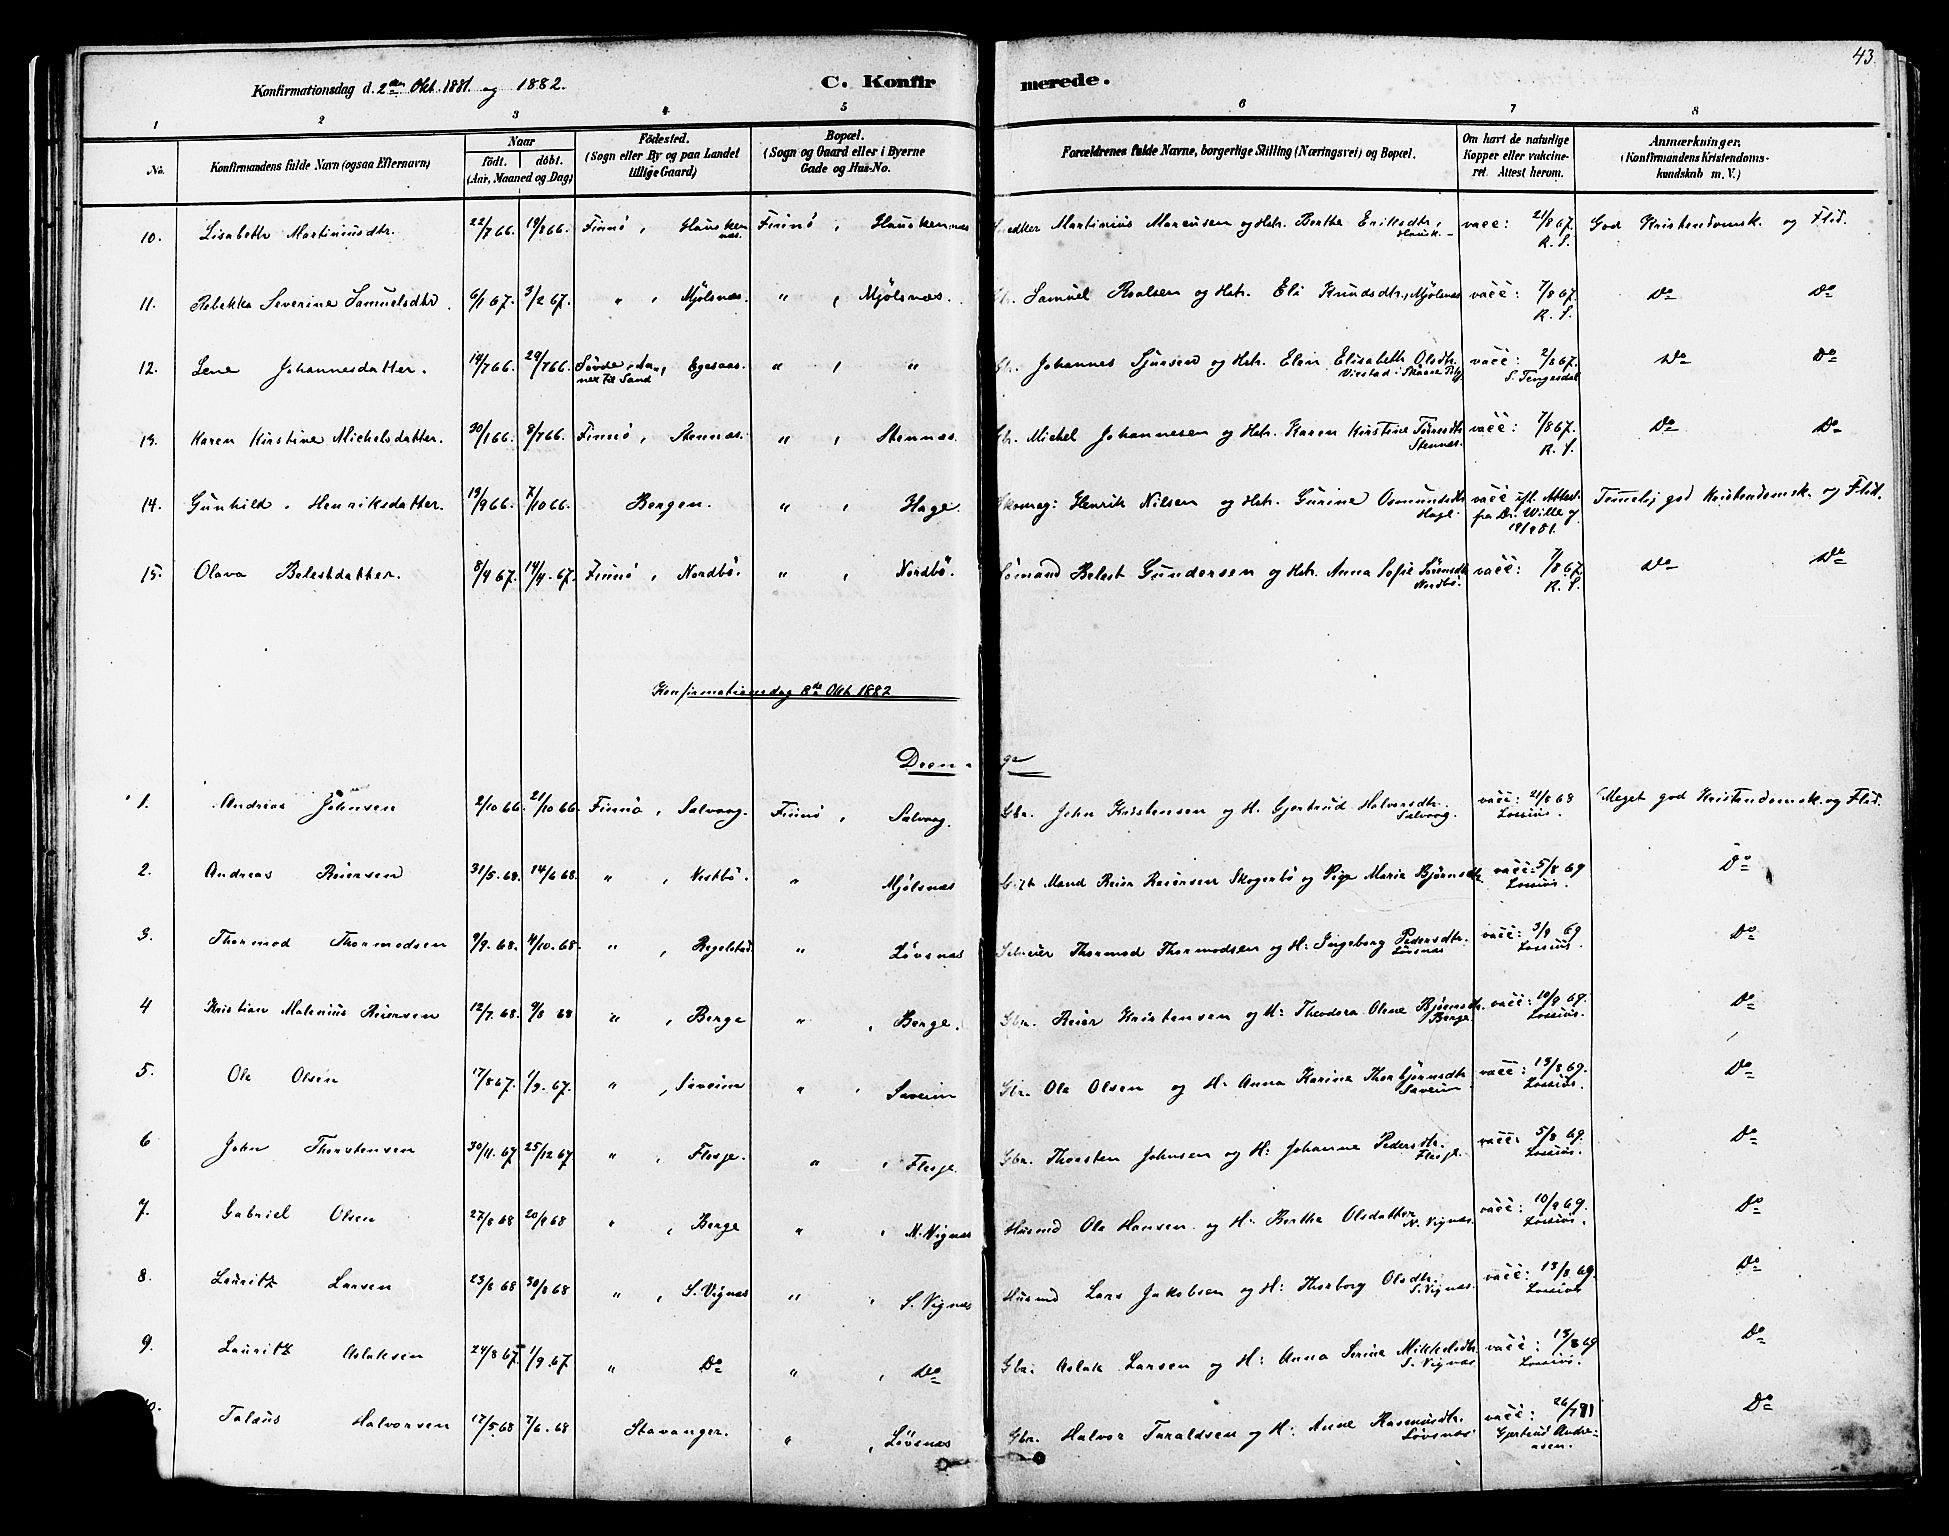 43.
Konfirmationsdag d. 2den Okt. 1881. og 1882.
C. Konfirmerede.
1 2 3 4 5 6 7 8
No.
Konfirmandens fulde Navn (ogsaa Efternavn)
Naar
födt. döbt.
(Aar, Maaned og Dag)
Födested.
(Sogn eller By og paa Landet
tillige Gaard)
Bopæl.
(Sogn og Gaard eller i Byerne
Gade og Hus-No.
Forældrenes fulde Navne, borgerlige Stilling (Næringsvei) og Bopæl.
Om havt de naturlige
Kopper eller vakcine-
ret. Attest herom.
Anmærkninger.
(Konfirmandens Kristendoms-
kundskab m. V.)
10. Lisabeth Martiniusdtr. 22/7 66. 19/8 66. Finnö, Hauskennæs. Finnö, Hauskennæs Martinius Marcusen og Hstr. Berthe Eriksdtr, Hausk. vacc: 21/8 67. R. S. God Kristendomsk. og Flid.
11. Rebekka Severine Samuelsdtr. 6/1 67. 3/2 67. " , Mjölsnæs. " , Mjölsnæs. Samuel Roalsen og Hstr. Eli Knudsdtr, Mjölsnæs vacc: 7/8 67. R. S. Do Do
12. Lene Johannesdatter. 14/7 66. 29/7 66. Sövde, Annex til Sand, Egesaas. " , " Johannes Sjursen og Hstr. Elen Elisabeth Olsdtr. vacc: 2/8 67. S. Tengesdal Do Do
13. Karen Kirstine Michelsdatter. 30/1 66. 8/7 66. Finnö, Stennæs. " , Stennæs. Gbr. Michel Johannesen og Hstr. Karen Kirstine Törresdtr. Stennæs. vacc: 7/8 67. R. S. Do Do
14. Gunhild Henriksdatter. 19/9 66. 7/10 66. Bergen. " , Hage. Skomag: Henrik Nilsen og Hstr. Gurine Osmundsdtr. Hage. vacc ifl. Attest fra Dr. Wille af 19/9 81. Temelig god Kristendomsk. og Flid.
15. Olava Belestdatter. 8/4 67. 14/4 67. Finnö, Nordbö. " , Nordbö. Sömand Belest Gundersen og Hstr. Anna Sofie Sörensdtr. Nordbö. vacc: 7/8 67. R. S. Do Do
Konfirmationsdag 8de Okt. 1882
Drenge
1. Andreas Johnsen 2/10 66. 21/10 66. Finnö, Salvaag. Finnö, Salvaag. Gbr. John Kristensen og H. Gjertrud Halvorsdtr. Salvaag. vacc: 21/8 68 Lossius. Meget god Kristendomsk. og Flid.
2. Andreas Reiersen 31/5. 68. 14/6 68. " , Vestbö. " Mjölsnæs Gift Mand Reier Reiersen Skogerbö og Pige Maria Björnsdtr. vacc: 5/8 69 Lossius. Do
3. Thormod Thormodsen 9/9. 68. 4/10. 68. " , Regelstad. " Lövsnæs Thormod Thormodsen og H: Ingeborg Pedersdtr. Lövsnæs vacc: 3/9 69 Lossius. Do
4 Kristian Malenius Reiersen 12/7. 68. 9/8 68 " , Berge " , Berge. Gbr. Reier Kristensen og H: Theodora Oline Björnsdtr. Berge. vacc: 10/9 69. Lossius. Do
5. Ole Olsen 17/8 67. 1/9. 67. " , Saveim " , Saveim Gbr. Ole Olsen og H: Anna Karina Thorbjörnsdtr. Saveim. vacc: 13/8 69. Lossius. Do
6 John Thorstensen 30/11. 67 25/12 67 " , Flesje. " , Flesje Gbr. Thorsten Johnsen og H: Johanne Pedersdtr. Flesje. vacc: 5/8 69. Lossius. Do
7. Gabriel Olsen 27/8 68 20/9 68 " , Berge " , N. Vignæs Husmd Ole Hansen og H: Berthe Olsdatter N. Vignæs. vacc: 10/9 69. Lossius. Do
8. Lauritz Larsen 23/8 68 30/8 68 " , S. Vignæs " , S. Vignæs Husmd Lars Jakobsen og H: Thorborg Olsdtr. S. Vignæs. vacc: 13/8 69. Lossius Do
9. Lauritz Aslaksen 24/8 67. 1/9. 67. " Do " , Do Gbr. Aslak Larsen og H: Anna Serine Mikkelsdtr. S. Vignæs vacc: 13/8 69 Lossius. Do
10. Taleus Halvorsen 17/5. 68 7/6. 68 Stavanger. " , Lövsnæs Gbr. Halvor Taraldsen og H: Anne Rasmusdtr. Lövsnæs vacc: 26/7 81 Gjertrud Andreasen. Do